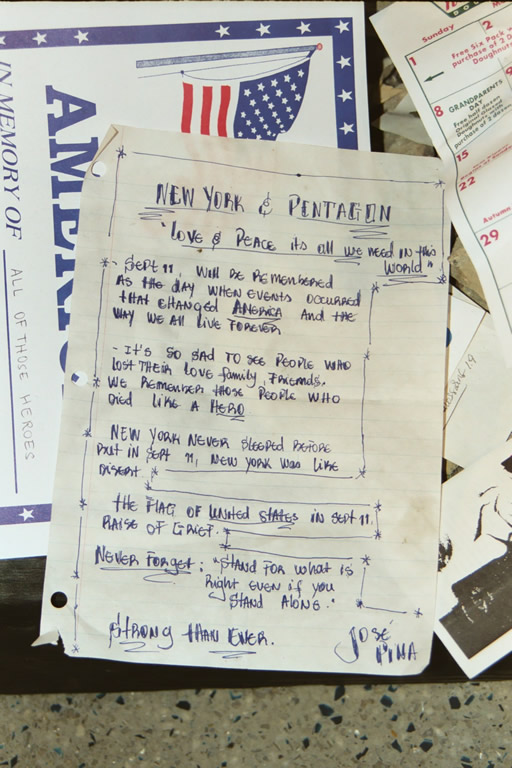 NEW YORK & PENTAGON
"LOVE & PEACE ITS ALL WE NEED IN THIS
WORLD"
- SEPT 11, WILL BE REMEMBERED
AS THE DAY WHEN EVENTS OCCURRED
THAT CHANGED AMERICA AND THE
WAY WE ALL LIVE FOREVER
- IT'S SO SAD TO SEE PEOPLE WHO
LOST THEIR LOVE FAMILY, FRIENDS.
WE REMEMBER THOSE PEOPLE WHO
DIED LIKE A HERO
NEW YORK NEVER SLEEPED BEFORE
BUT IN SEPT 11, NEW YORK WAS LIKE
DISERT.
THE FLAG OF UNITED STATES IN SEPT 11.
RAISE OF GRIEF.
NEVER FORGET: "STAND FOR WHAT IS
RIGHT EVEN IF YOU
STAND ALONE."
STRONG THAN EVER.
JOSÉ
PINA
IN MEMORY OF ALL OF THOSE HEROES
Sunday
1
2
Free Six Pack w
purchase of 2 D
Doughnuts
8
GRANDPARENTS
DAY
15
22
Autumn
29